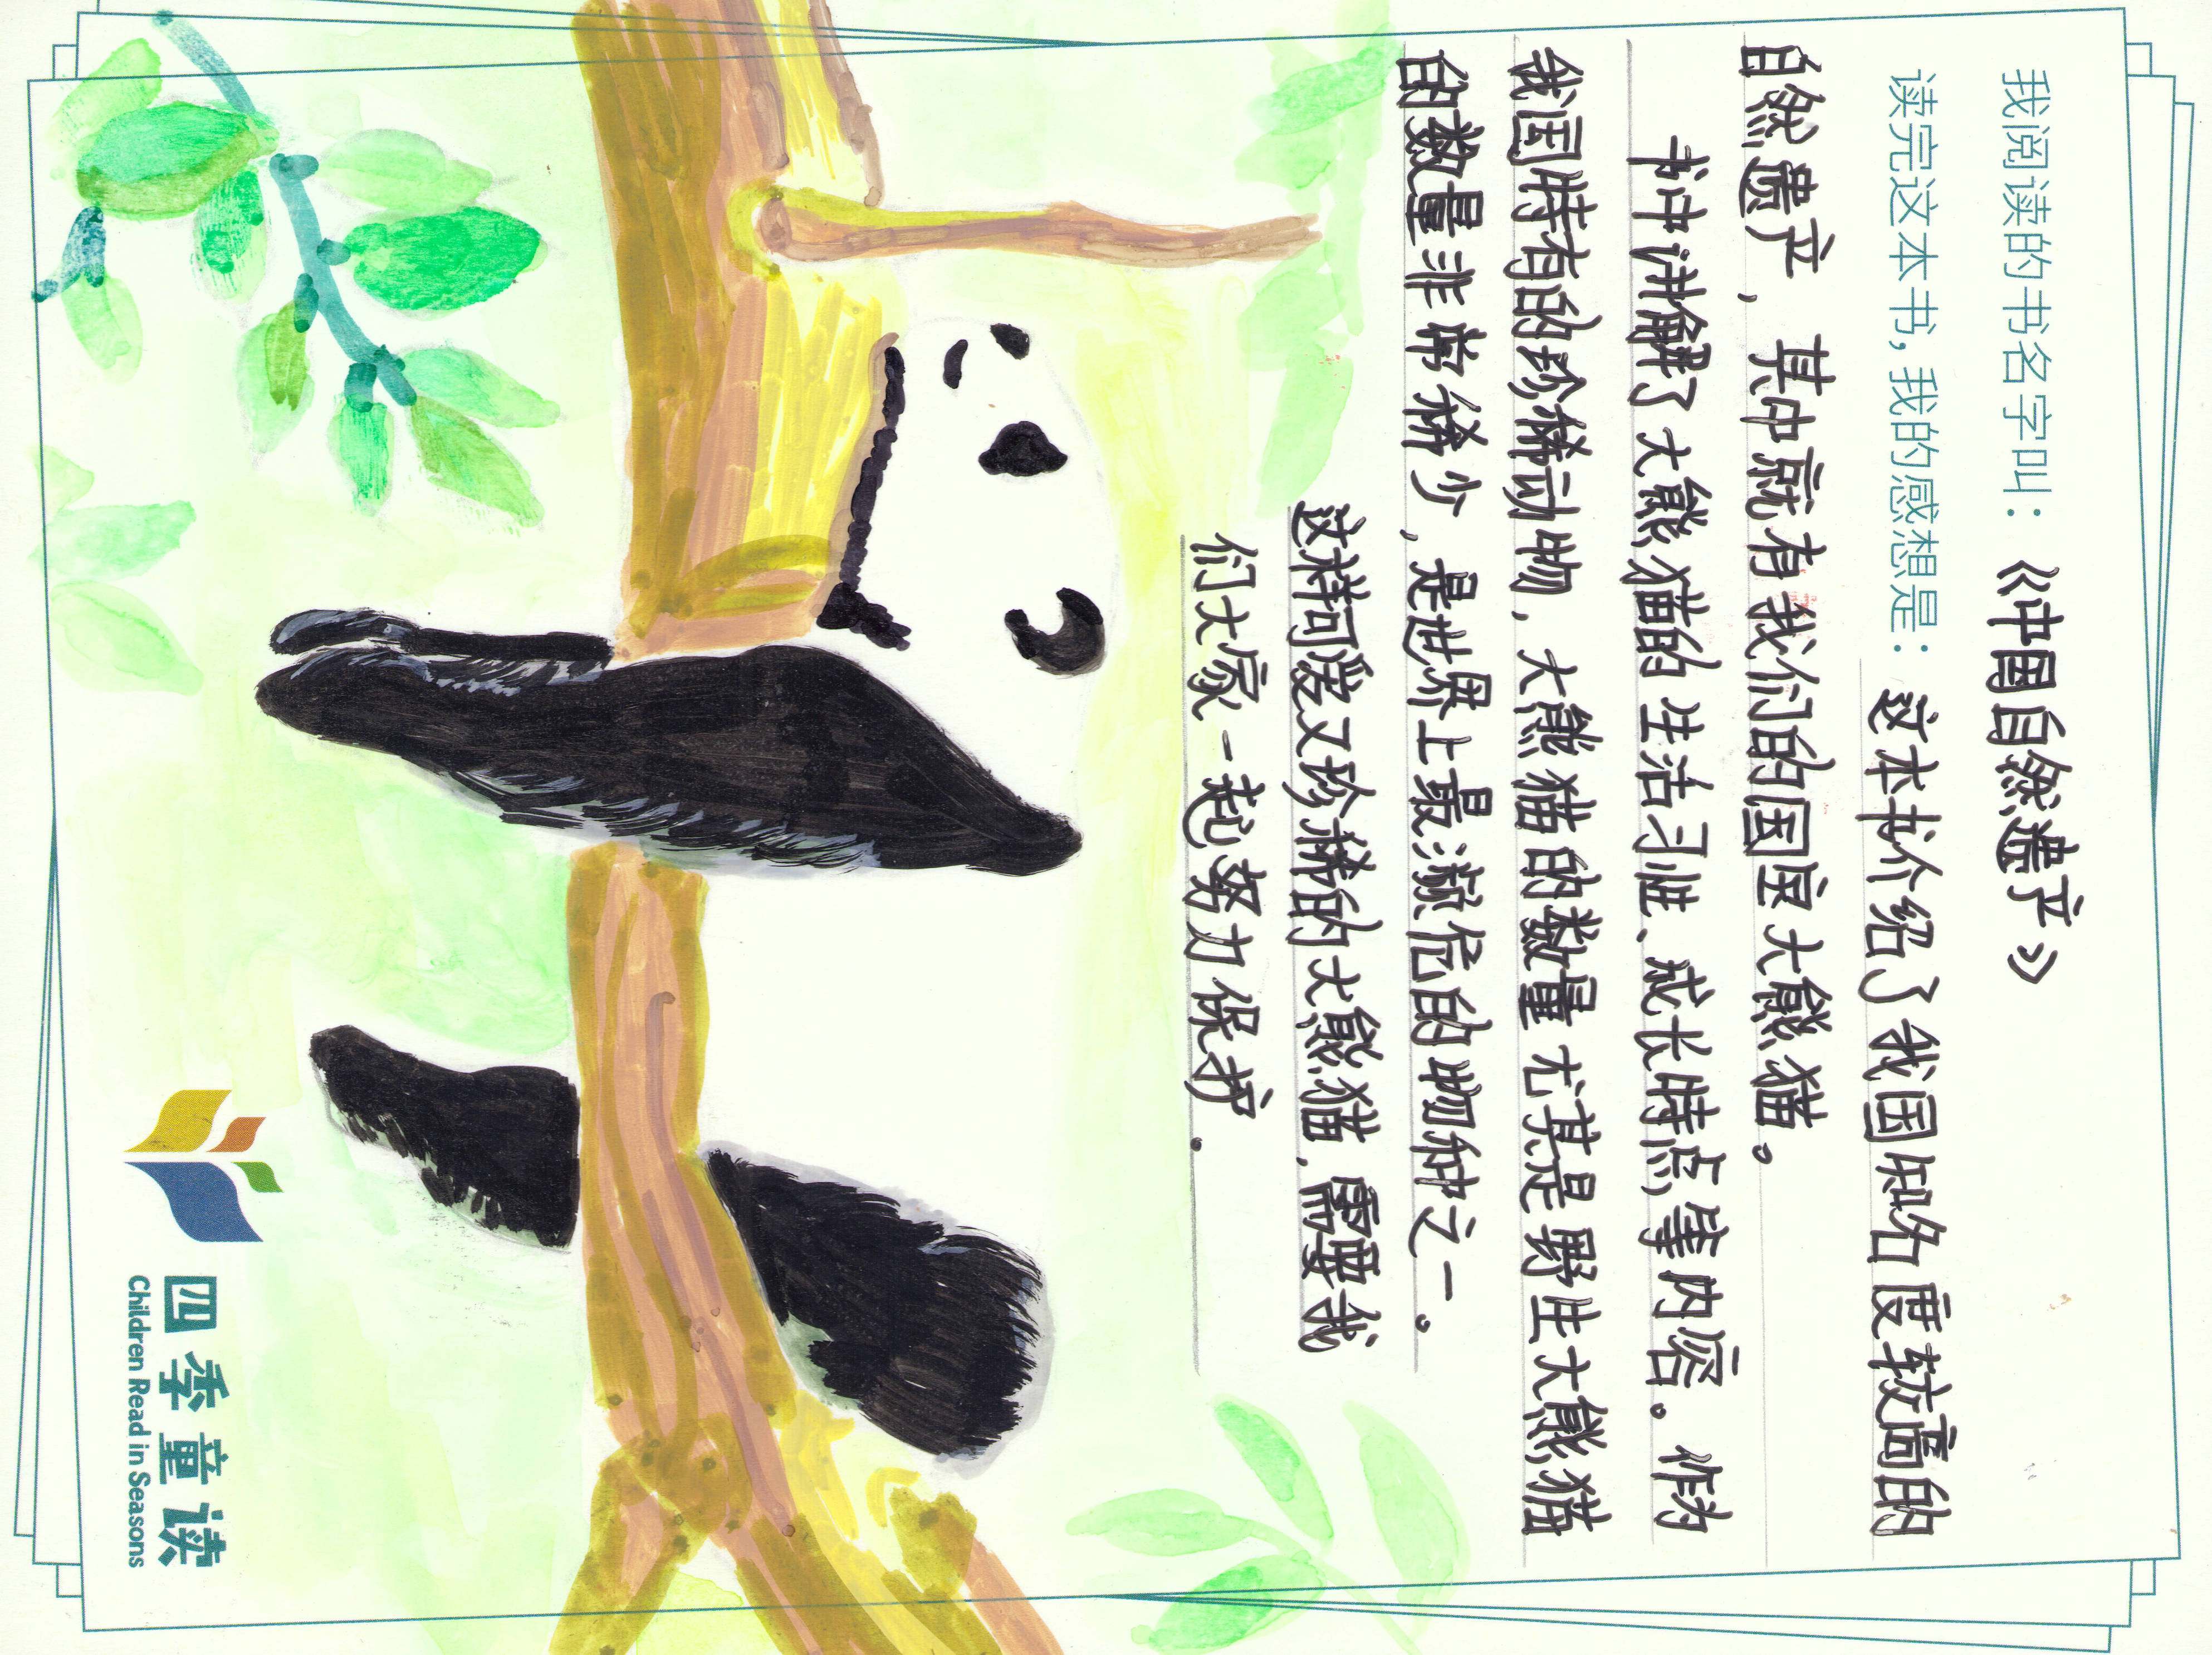 我阅读的书名字叫：《中国自然遗产》
读完这本书，我的感想是：这本书介绍了我国知名度较高的
自然遗产，其中就有我们的国宝大熊猫。
书中讲解了大熊猫的生活习性、成长特点等内容。作为
我国特有的珍稀动物，大熊猫的数量尤其是野生大熊猫
的数量非常稀少，是世界上最濒危的物种之一。
这样可爱又珍稀的大熊猫，需要我
们大家一起努力保护。
四季童读
Children Read in Seasons